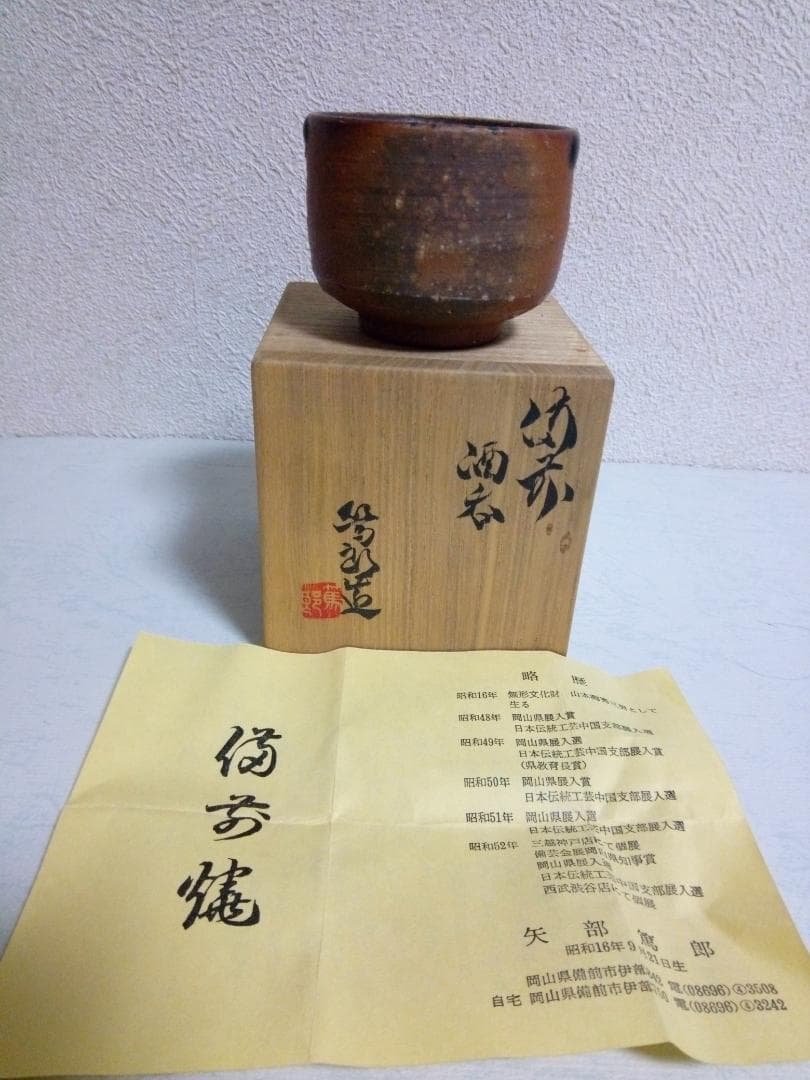 備前
酒呑
篤郎造
篤郎
備前焼
略歴
昭和16年 無形文化財 山本陶秀 男として
生る
昭和48年 岡山県展入賞
日本伝統工芸中国支部展入選
昭和49年 岡山県展入選
日本伝統工芸中国支部展入賞
(県教育長賞)
昭和50年 岡山県展入賞
日本伝統工芸中国支部展入選
昭和51年 岡山県展入選
日本伝統工芸中国支部展入選
昭和52年 三越神戸店にて個展
備芸会展岡山県知事賞
岡山県展入選
日本伝統工芸中国支部展入選
西武渋谷店にて個展
矢部篤郎
昭和16年9月21日生
岡山県備前市伊部 電(08696)④3508
自宅 岡山県備前市伊部 電(08696)④3242